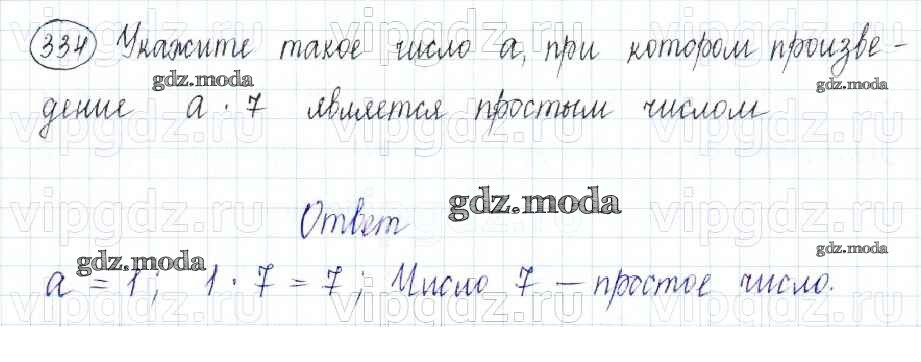 334 Укажите такое число a, при котором произве-
дение a · 7 является простым числом
Ответ
a = 1; 1 · 7 = 7; Число 7 – простое число.
gdz.moda
gdz.moda
gdz.moda
gdz.moda
gdz.moda
vipgdz.ru